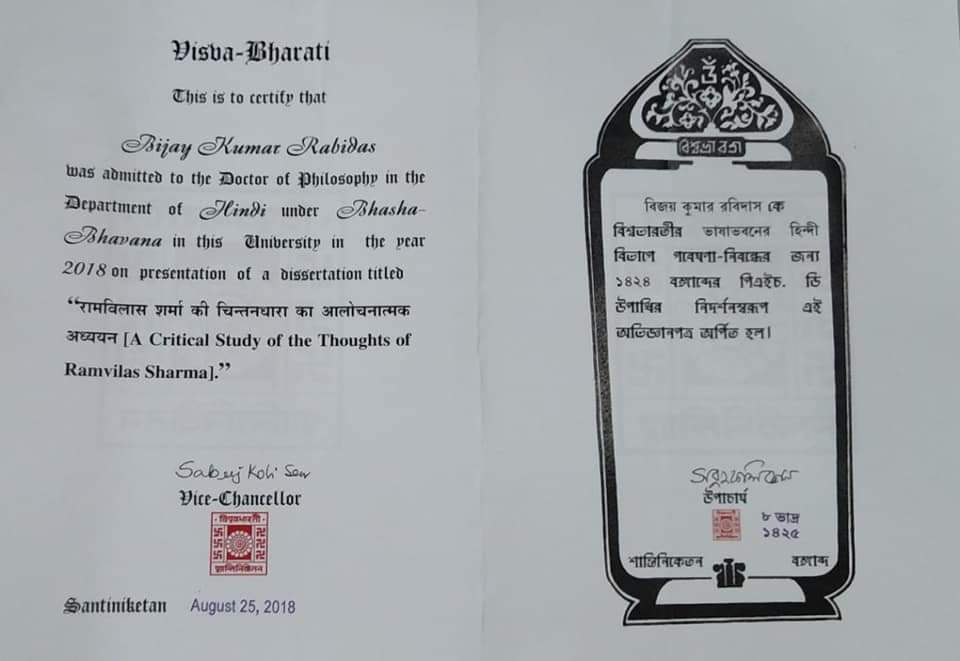 Visva-Bharati
This is to certify that
Bijay Kumar Rabidas
was admitted to the Doctor of Philosophy in the
Department of Hindi under Bhasha-
Bhavana in this University in the year
2018 on presentation of a dissertation titled
“रामविलास शर्मा की चिन्तनधारा का आलोचनात्मक
अध्ययन [A Critical Study of the Thoughts of
Ramvilas Sharma].”
Sabuj Koli Sen
Vice-Chancellor
Santiniketan August 25, 2018
বিশ্বভারতী
বিজয় কুমার রবিদাস কে
বিশ্বভারতীর ভাষাভবনের হিন্দী
বিভাগে গবেষণা-নিবন্ধের জন্য
১৪২৪ বঙ্গাব্দের পিএইচ. ডি
উপাধির নিদর্শনস্বরূপ এই
অভিজ্ঞানপত্র অর্পিত হল।
সবুজকলি সেন
উপাচার্য
৮ ভাদ্র
১৪২৫
শান্তিনিকেতন বঙ্গাব্দ